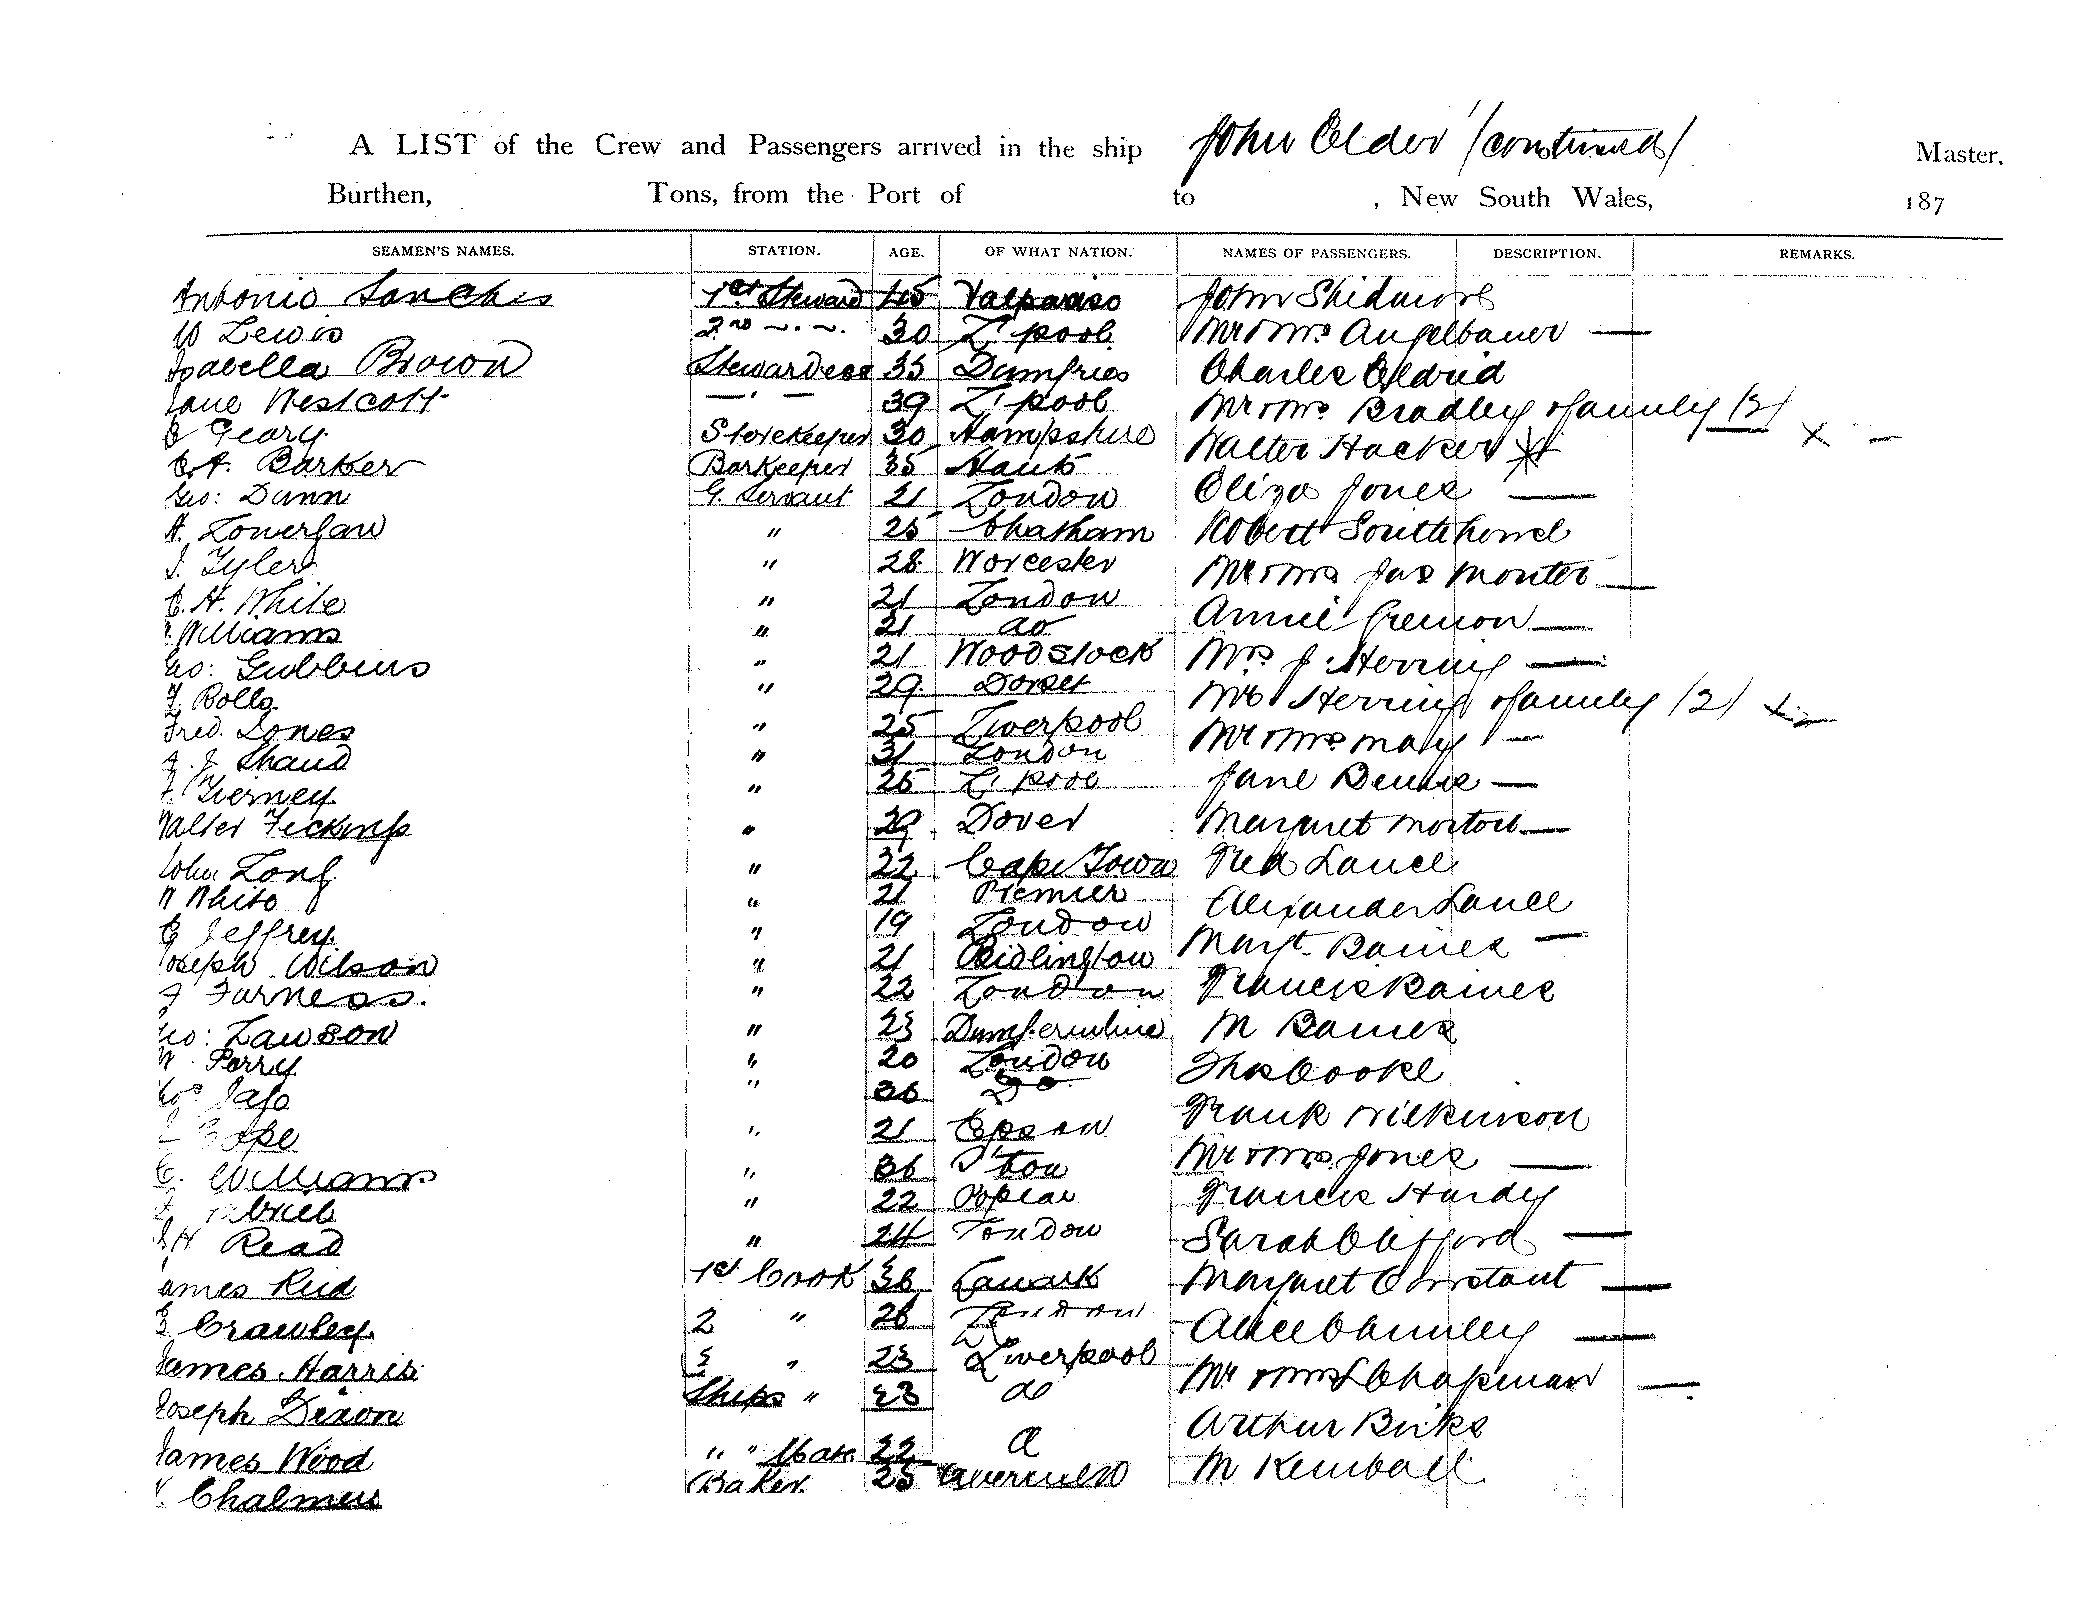 A LIST of the Crew and Passengers arrived in the ship John Elder (continued) Master,
Burthen, Tons, from the Port of to , New South Wales, 187
SEAMEN'S NAMES. STATION. AGE. OF WHAT NATION. NAMES OF PASSENGERS. DESCRIPTION. REMARKS.
Antonio Sanches 1st Steward 45 Valparaiso John Skidmore
W Lewis 2nd ~ . ~ . 30 L'pool Mr & Mrs Angelbauer —
Isabella Brown Stewardess 35 Dumfries Charles Eldrid
Jane Westcott — ' — 39 L'pool Mr & Mrs Bradley & family (3)
Geary Storekeeper 30 Hampshire Walter Hacker x —
Barker Barkeeper 35 Hants Eliza Jones —
Geo: Dunn G. Servant 21 London Robert
A. " 25 Chatham Mr & Mrs Jas —
J. Tyler " 28 Worcester Annie —
C. H. White " 21 London Mrs J. Herring —
Williams " 21 do Mr Herring & family (2)
Geo: Gubbins " 21 Woodstock Mr & Mrs May —
Rolls " 29 Dorset Jane —
Fred. Jones " 25 Liverpool Margaret Morton —
Shand " 31 London Fred Lance
Tierney " 25 L'pool Alexander Lance
Walter " 29 Dover Margt. Baines —
John Long " 22 Cape Town Francis Baines
W White " 21 M Baines
Jeffrey " 19 London Thos Cooke
Joseph Wilson " 21 Bridlington Frank Wilkinson
Furness. " 22 London Mr & Mrs Jones —
Geo: Lawson " 23 Dumfermline Francis Hardy
W. Perry " 20 London Sarah Clifford —
" 36 Do Margaret Constant —
Cope " 21 Epsom Alice Chumley —
C. Williams " 36 Mr & Mrs Chapman —
" 22 Poplar Arthur Birks
Read " 24 London M Kemball
James Reid 1st Cook 36 Lanark
Crawley 2 " 26 London
James Harris 3 " 23 Liverpool
Joseph Dixon Ships " 23 do
James Wood " " Mate 22
Chalmers Baker 25